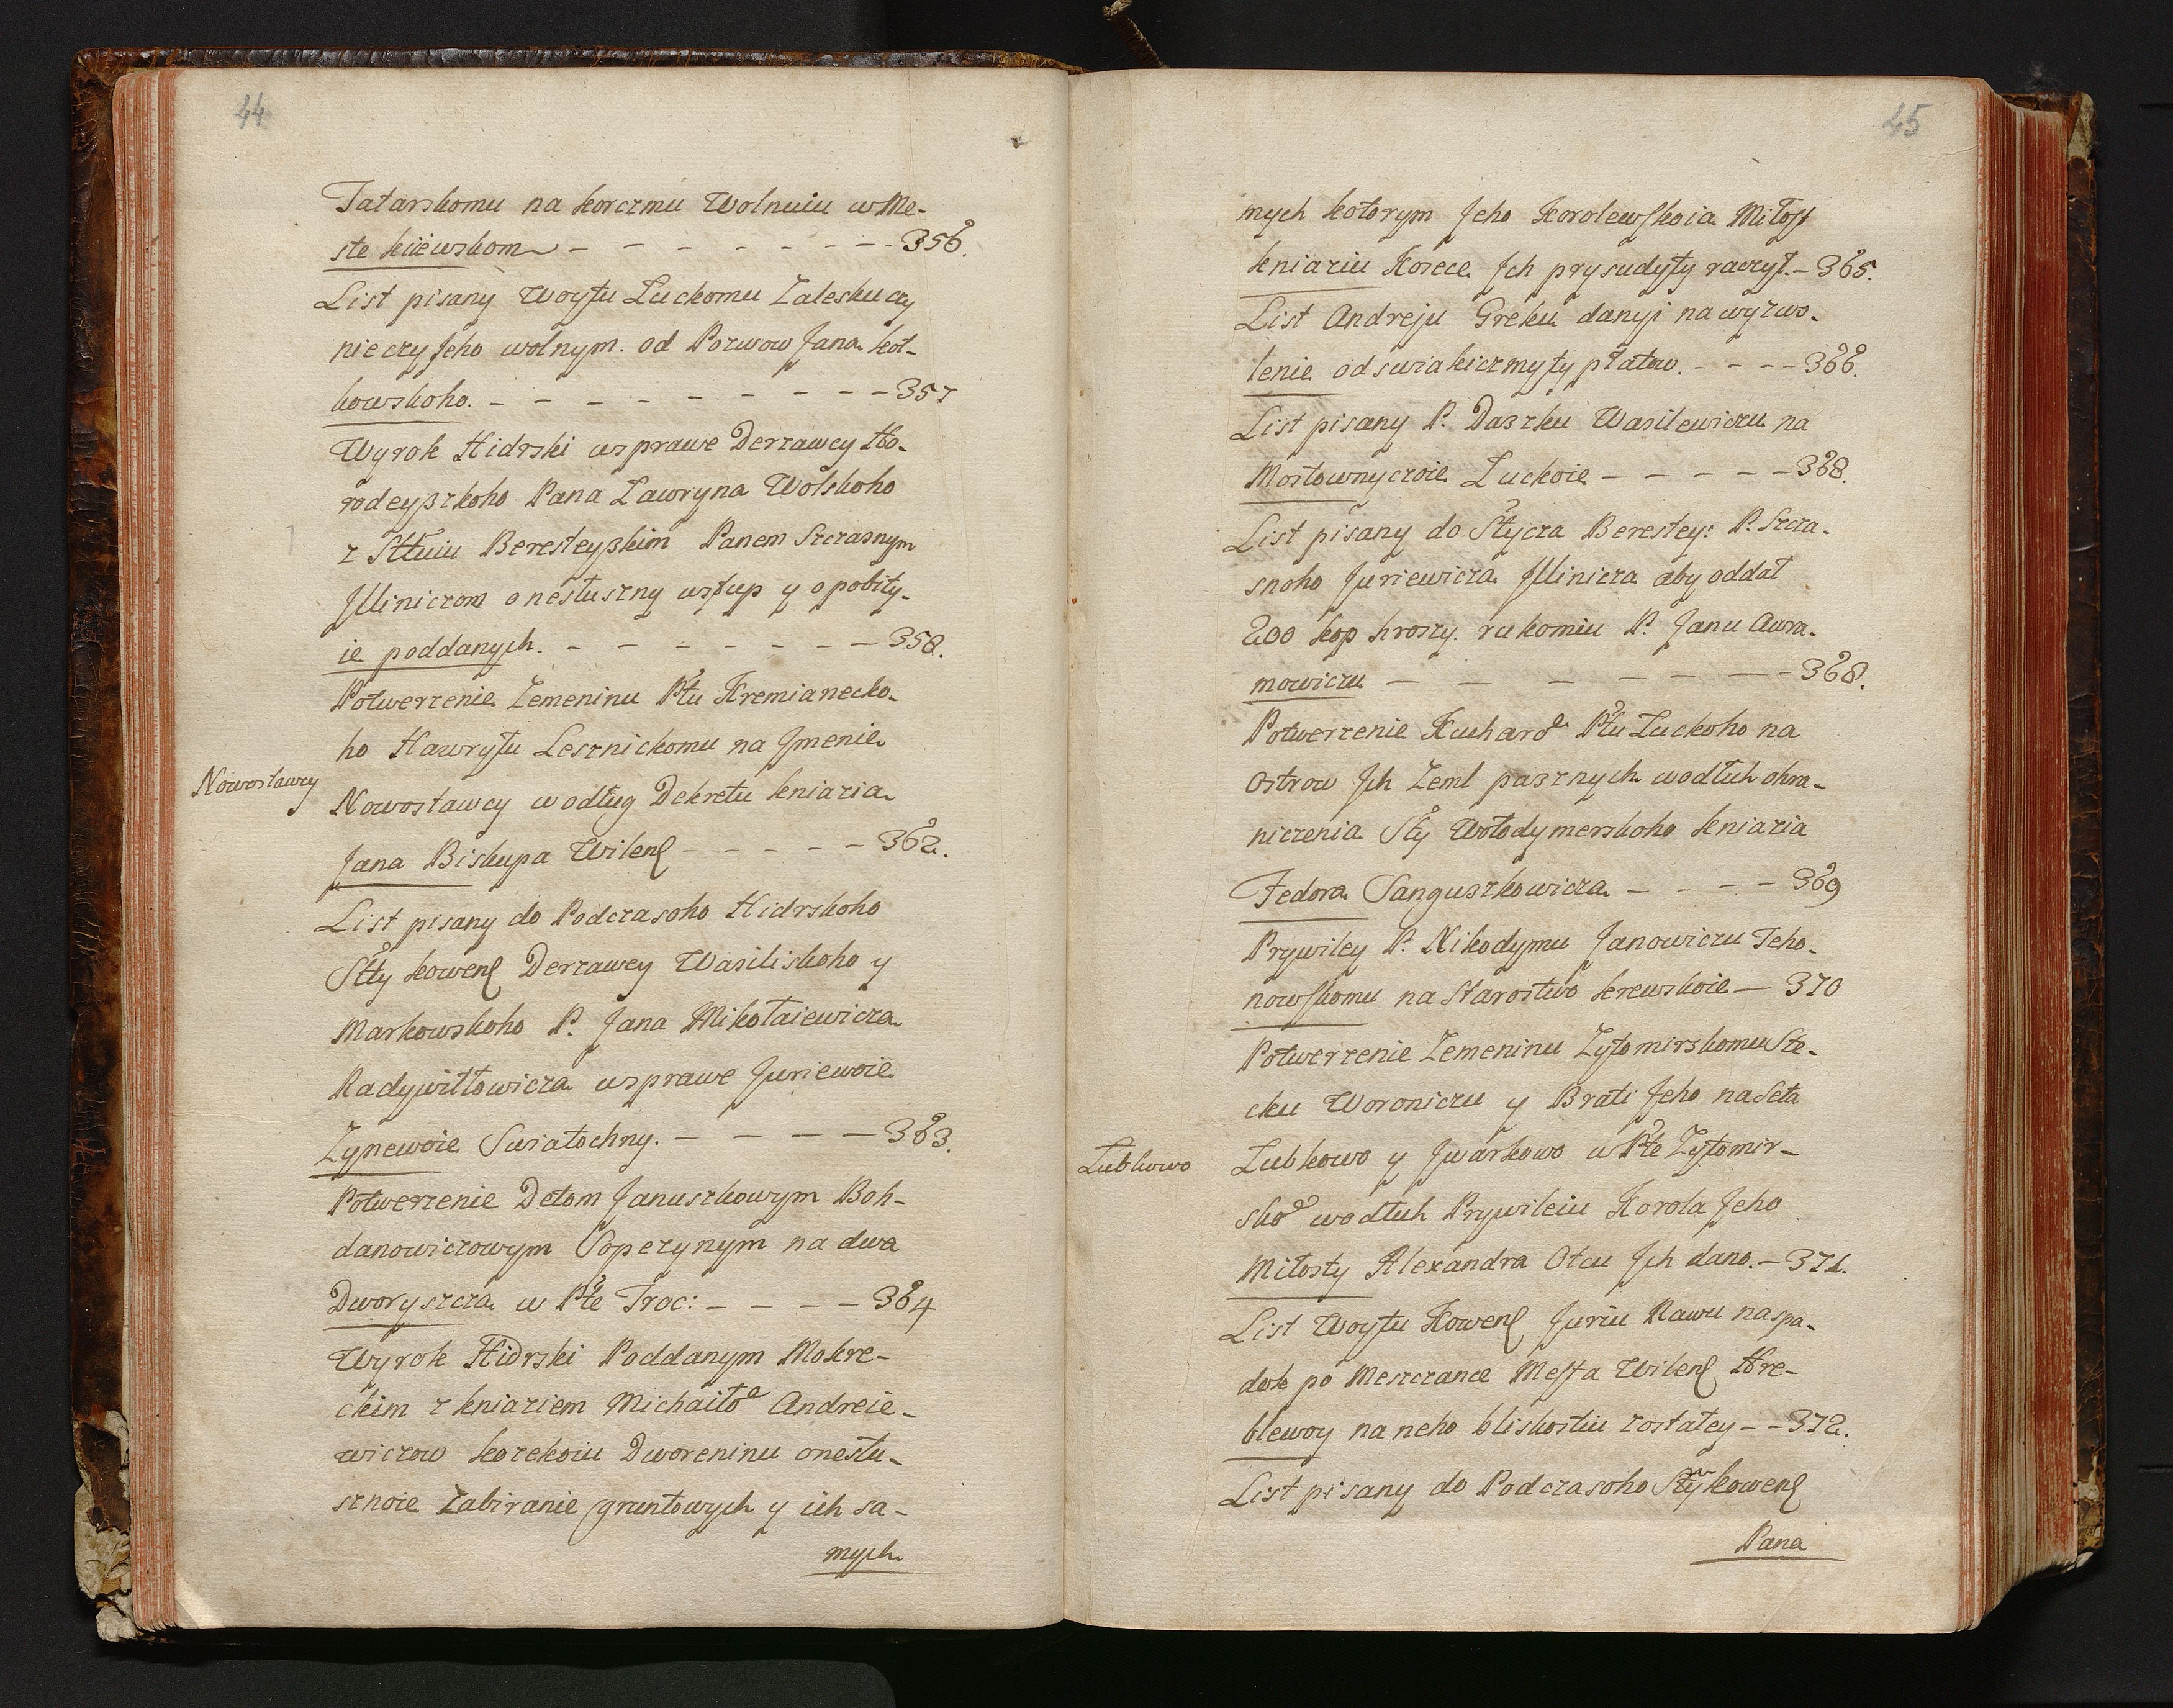 44.
Tatarskomu na korczmu Wolnuiu w Me-
ste kiiewskom - - - - - - - - 356.
List pisany Woytu Łuckomu Zaleskuczy
nieczy Jeho wolnym. od Pozwow Jana koł-
kowskoho. - - - - - - - - - 357
Wyrok Hidrski wsprawe Derzawcy Ho-
rodeyszkoho Pana Ławryna Wolskoho
z Sttuiu Beresteyskim Panem Szczasnym
Jlliniczom o nesłuszny wstup y o pobity-
ie poddanych. - - - - - - - - 358.
Potwerzenie Zemeninu Ptu Kremianecko-
ho Hawryłu Lesznickomu na Jmenie
Nowosławcy
Nowostawcy wodług Dekretu kniazia
Jana Biskupa Wilen - - - - - 362.
List pisany do Podczasoho Hidrskoho
Stty kowen Derzawcy Wasiliskoho y
Markowskoho P. Jana Mikołaiewicza
Radywiłłowicza wsprawe Juriewoie
Zynewoie Swiatochny. - - - - 363.
Potwerzenie Detom Januszkowym Boh-
danowiczowym Sopezynym na dwa
Dworyszcza w Pte Troc: - - - - 364
Wyrok Hidrski Poddanym Mokre-
ckim z kniaziem Michaiło Andreie-
wiczow kozekoiu Dworeninu onesłu-
sznoie Zabiranie gruntowych y ich sa-
mych
45
mych kotorym Jeho Korolewskoia Miłost
kniaziu Kozece Jch prysudyty raczył. - 365.
List Andreju Greku danyi na wyzwo-
lenie odswiakiczmyty płatow. - - - - 366.
List pisany P. Daszku Wasilewiczu na
Mostownyczoie Łuckoie - - - - - 368.
List pisany do Stycza Berestey: P. Szcza-
snoho Juriewicza Jllinicza aby oddał
200 kop hroszy. rukomiu P. Janu Awra-
mowiczu - - - - - - - - 368.
Potwerzenie Kucharo Ptu Łuckoho na
Ostrow Jch Zeml pasznych wodłuh ohra-
niczenia Sty Wołodymerskoho kniazia
Fedora Sanguszkowicza - - - - 369
Prywiley P. Nikodymu Janowiczu Teho-
nowskomu na Starostwo krewskoie - 370
Potwerzenie Zemeninu Zytomirskomu Ste-
cku Woroniczu y Brati Jeho na Seła
Łubkowo
Łubkowo y Jwarkowo w Pte Zytomir-
sko wodłuh Prywileiu Korola Jeho
Miłosty Alexandra Otcu Jch dano. - 371.
List Woytu Kowen Juriu Rawu na spa-
dok po Meszczance Mesta Wilen Hre-
blewoy na neho bliskostiu zostałey - - 372.
List pisany do Podczasoho Sty kowen
Pana